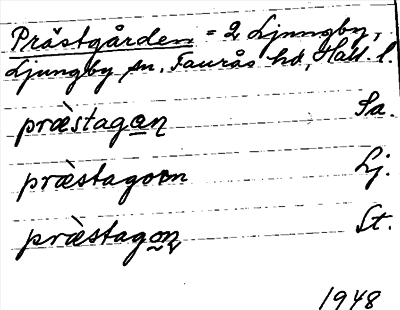 Prästgården = 2 Ljungby,
Ljungby sn, Faurås hd, Hall. l.
præ̀stagan Sa.
præ̀stagoɷn Lj.
præ̀stagon St.
1948